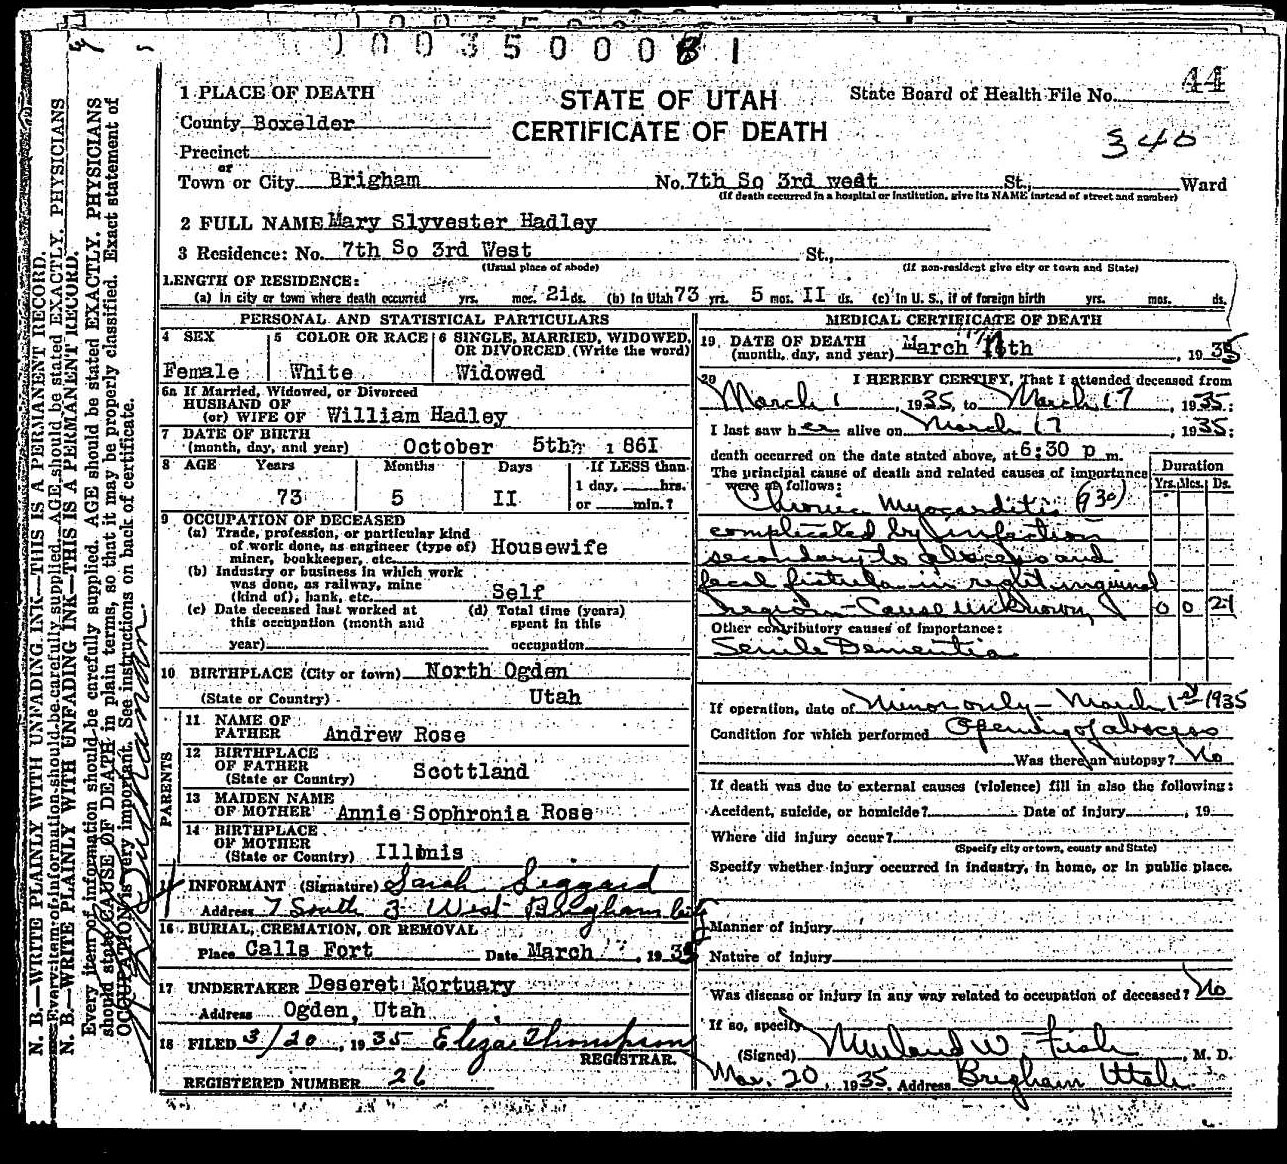 1 0 0 3 5 0 0 0 8 1
44
1 PLACE OF DEATH
STATE OF UTAH
CERTIFICATE OF DEATH
State Board of Health File No.
340
County Boxelder
Precinct
or
Town or City Brigham No. 7th So 3rd west St., Ward
(If death occurred in a hospital or institution, give its NAME instead of street and number)
2 FULL NAME Mary Slyvester Hadley
3 Residence: No. 7th So 3rd West St.,
(Usual place of abode) (If non-resident give city or town and State)
LENGTH OF RESIDENCE:
(a) In city or town where death occurred yrs. mos. 21 ds. (b) In Utah 73 yrs. 5 mos. II ds. (c) In U. S., if of foreign birth yrs. mos. ds.
PERSONAL AND STATISTICAL PARTICULARS
4 SEX 5 COLOR OR RACE 6 SINGLE, MARRIED, WIDOWED, OR DIVORCED (Write the word)
Female White Widowed
6a If Married, Widowed, or Divorced
HUSBAND OF
(or) WIFE OF William Hadley
7 DATE OF BIRTH
(month, day, and year) October 5th 1861
8 AGE Years Months Days If LESS than
1 day, hrs.
73 5 II or min.?
9 OCCUPATION OF DECEASED
(a) Trade, profession, or particular kind
of work done, as engineer (type of)
miner, bookkeeper, etc. Housewife
(b) Industry or business in which work
was done, as railway, mine
(kind of), bank, etc. Self
(c) Date deceased last worked at (d) Total time (years)
this occupation (month and spent in this
year) occupation
10 BIRTHPLACE (City or town) North Ogden
(State or Country) Utah
PARENTS
11 NAME OF
FATHER Andrew Rose
12 BIRTHPLACE
OF FATHER
(State or Country) Scottland
13 MAIDEN NAME
OF MOTHER Annie Sophronia Rose
14 BIRTHPLACE
OF MOTHER
(State or Country) Illinis
INFORMANT (Signature) Sarah Seggard
Address 7 South 3 West Brigham City
16 BURIAL, CREMATION, OR REMOVAL
Place Calls Fort Date March , 1935
17 UNDERTAKER Deseret Mortuary
Address Ogden, Utah
18 FILED 3/20, 1935 Eliza Thompson
REGISTRAR.
REGISTERED NUMBER 26
MEDICAL CERTIFICATE OF DEATH
19 DATE OF DEATH
(month, day, and year) March 17th , 1935
20 I HEREBY CERTIFY, That I attended deceased from
March 1, 1935, to March 17, 1935:
I last saw her alive on March 17, 1935:
death occurred on the date stated above, at 6:30 p m.
The principal cause of death and related causes of importance
were as follows:
Duration
Yrs. Mos. Ds.
Chronic Myocarditis (930)
complicated by infection
secondary to abscess and
fecal fistula in right inguinal
region - Cause unknown 0 0 21
Other contributory causes of importance:
Senile Dementia
If operation, date of Minor only - March 1st 1935
Condition for which performed Opening of abscess
Was there an autopsy? No
If death was due to external causes (violence) fill in also the following:
Accident, suicide, or homicide? Date of injury , 19
Where did injury occur?
(Specify city or town, county and State)
Specify whether injury occurred in industry, in home, or in public place.
Manner of injury
Nature of injury
Was disease or injury in any way related to occupation of deceased? No
If so, specify
(Signed) W. Fish , M. D.
Mar. 20, 1935 Address Brigham Utah
N. B.—WRITE PLAINLY WITH UNFADING INK—THIS IS A PERMANENT RECORD.
Every item of information should be carefully supplied. AGE should be stated EXACTLY. PHYSICIANS
N. B.—WRITE PLAINLY WITH UNFADING INK—THIS IS A PERMANENT RECORD.
Every item of information should be carefully supplied. AGE should be stated EXACTLY. PHYSICIANS
should state CAUSE OF DEATH in plain terms, so that it may be properly classified. Exact statement of
OCCUPATION is very important. See instructions on back of certificate.